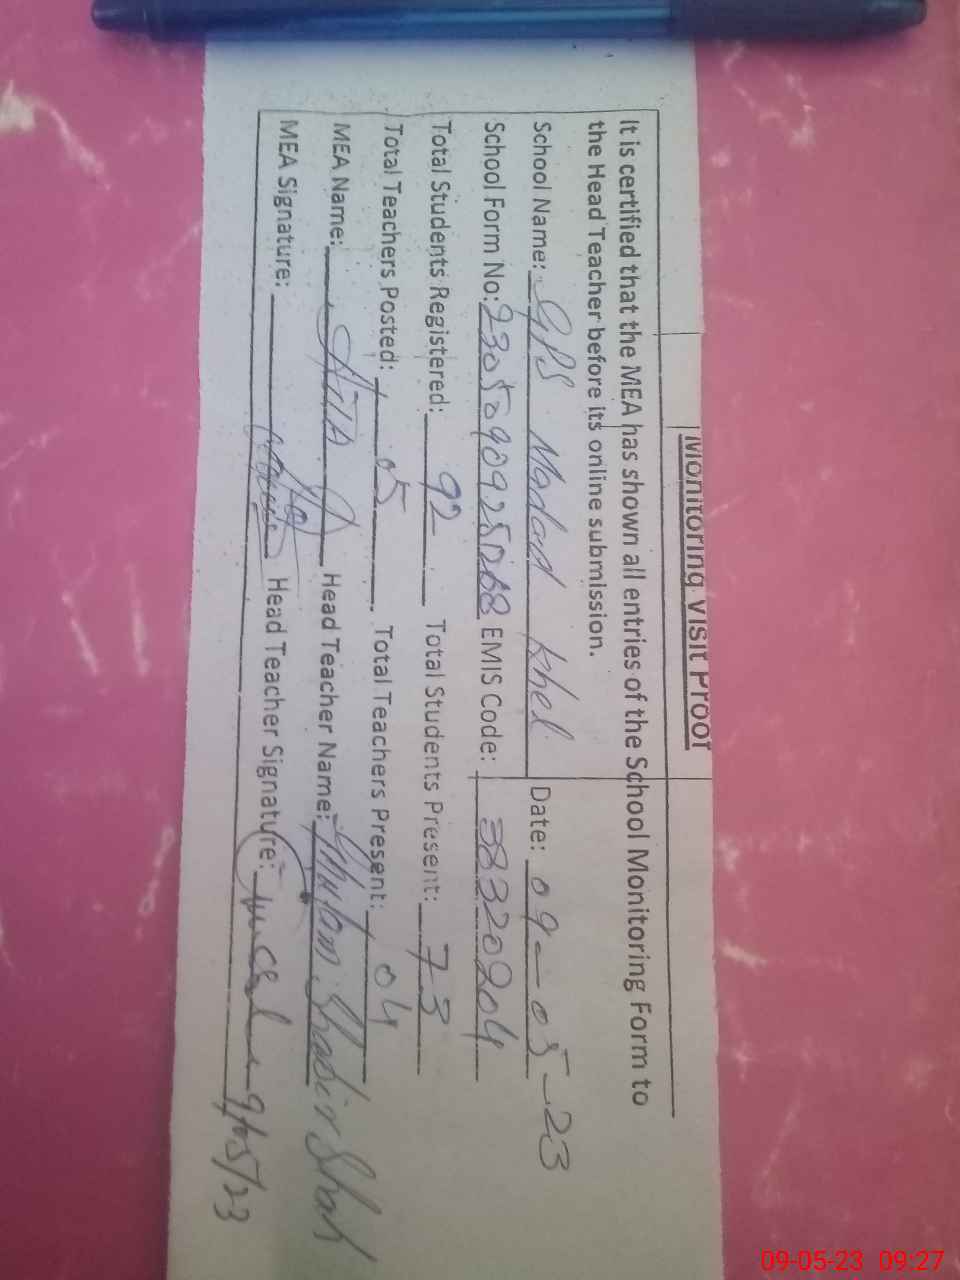 Monitoring Visit Proof
It is certified that the MEA has shown all entries of the School Monitoring Form to
the Head Teacher before its online submission.
School Name: GPS Madad Khel Date: 09-05-23
School Form No: EMIS Code: 38320204
Total Students Registered: 92 Total Students Present: 73
Total Teachers Posted: 05 Total Teachers Present: 04
MEA Name: Head Teacher Name: Ghulam Shabir Shah
MEA Signature: Head Teacher Signature: 9/05/23
09-05-23 09:27